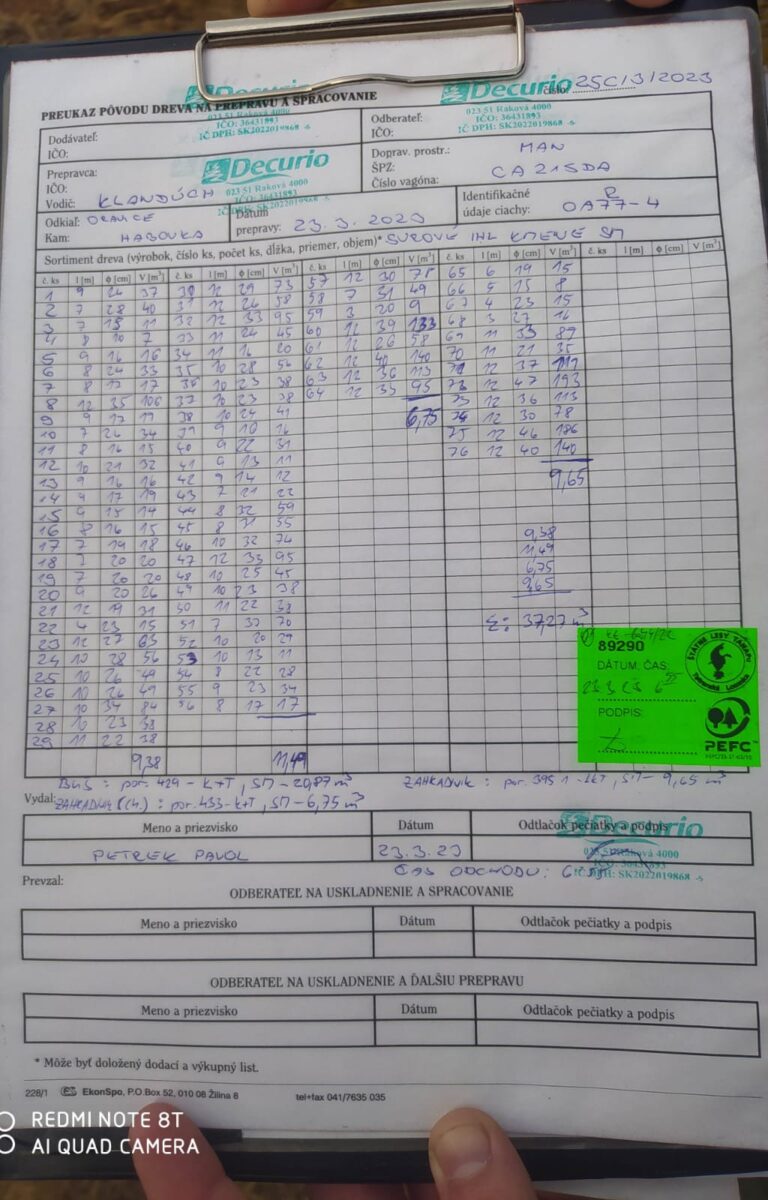 Decurio
023 51 Raková 4000
IČO: 36431893
IČ DPH: SK2022019868
Decurio
023 51 Raková 4000
IČO: 36431893
IČ DPH: SK2022019868
číslo 25C/3/2023
PREUKAZ PÔVODU DREVA NA PREPRAVU A SPRACOVANIE
Dodávateľ:
IČO:
Odberateľ:
IČO:
Prepravca:
IČO:
Vodič: KLANDÚCH
Decurio
023 51 Raková 4000
IČO: 36431893
IČ DPH: SK2022019868
Doprav. prostr.: MAN
ŠPZ: CA215DA
Číslo vagóna:
Odkiaľ: ORAVICE
Kam: HABOVKA
Dátum
prepravy: 23. 3. 2023
Identifikačné
údaje ciachy: R
OA77-4
Sortiment dreva (výrobok, číslo ks, počet ks, dĺžka, priemer, objem)* SUROVÉ IHL KMENE SM
č. ks l [m] ϕ [cm] V [m³] č. ks l [m] ϕ [cm] V [m³] č. ks l [m] ϕ [cm] V [m³] č. ks l [m] ϕ [cm] V [m³] č. ks l [m] ϕ [cm] V [m³]
1 9 24 37 30 12 29 73 57 12 30 78 65 6 19 15
2 7 28 40 31 12 26 58 58 7 31 49 66 5 15 8
3 7 15 11 32 12 33 95 59 3 20 9 67 4 23 15
4 8 10 7 33 11 24 45 60 12 39 133 68 3 27 16
5 9 16 16 34 11 16 20 61 12 26 58 69 11 33 87
6 8 24 33 35 10 28 56 62 12 40 140 70 11 21 35
7 8 17 17 36 10 23 38 63 12 36 113 71 12 37 119
8 12 35 106 37 10 23 38 64 12 33 95 72 12 47 193
9 9 17 19 38 10 24 41 6,75 73 12 36 113
10 7 26 34 39 9 10 16 74 12 30 78
11 8 16 15 40 9 22 31 75 12 46 186
12 10 21 32 41 9 13 11 76 12 40 140
13 9 16 16 42 9 14 12 9,65
14 9 17 19 43 7 21 22
15 9 15 14 44 8 32 59
16 8 16 15 45 8 31 55
17 7 19 18 46 10 32 74
18 7 20 20 47 12 33 95
19 7 20 20 48 10 25 45
20 9 20 26 49 10 23 38
21 12 19 31 50 11 22 38
22 4 23 15 51 7 37 70
23 12 27 63 52 10 20 29
24 10 28 56 53 10 13 11
25 10 26 49 54 8 22 28
26 10 26 49 55 9 23 34
27 10 34 84 56 8 17 17
28 10 23 38
29 11 22 38
9,38 11,49
9,38
11,49
6,75
9,65
Σ: 37,27 m³
89290
DÁTUM, ČAS:
PODPIS:
ŠTÁTNE LESY TANAPU
Tatranská Lomnica
PEFC
por. 429 - K+T, SM - 20,87 m³
ZAHRADNIK : por. 395 1 - K+T, SM - 9,65 m³
Vydal: por. 433 - K+T, SM - 6,75 m³
Meno a priezvisko Dátum Odtlačok pečiatky a podpis
PETREK PAVOL 23.3.23
Decurio
023 51 Raková 4000
IČ DPH: SK2022019868
ČAS ODCHODU:
Prevzal:
ODBERATEĽ NA USKLADNENIE A SPRACOVANIE
Meno a priezvisko Dátum Odtlačok pečiatky a podpis
ODBERATEĽ NA USKLADNENIE A ĎALŠIU PREPRAVU
Meno a priezvisko Dátum Odtlačok pečiatky a podpis
* Môže byť doložený dodací a výkupný list.
228/1 EkonSpo, P.O.Box 52, 010 08 Žilina 8 tel+fax 041/7635 035
REDMI NOTE 8T
AI QUAD CAMERA